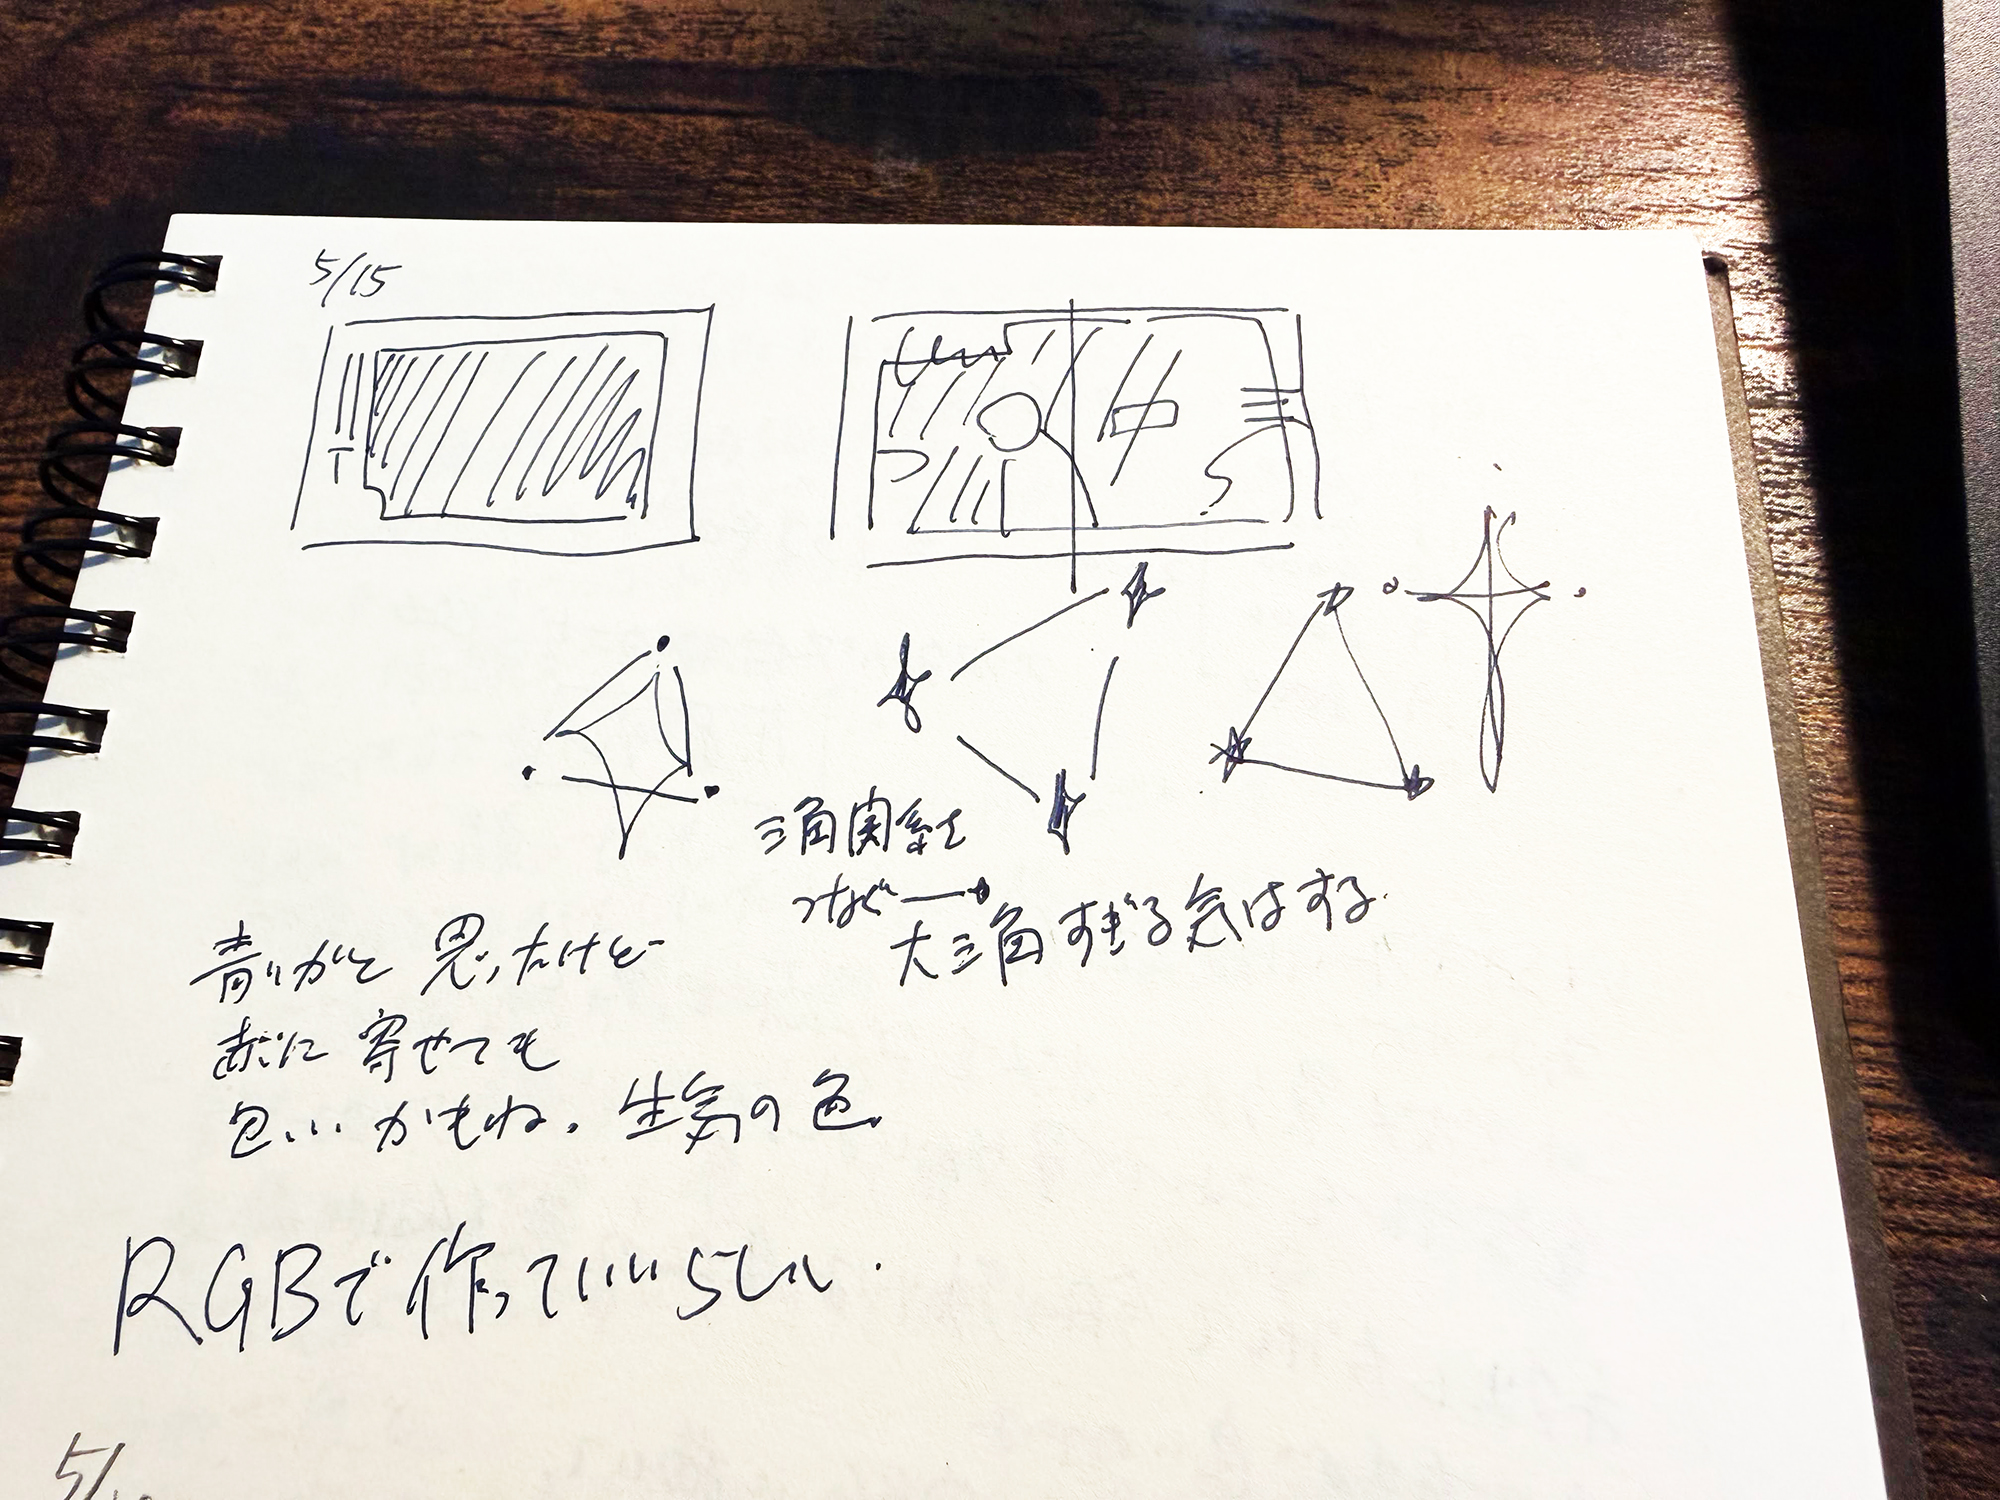 5/15
T
三角関係を
つなぐ→
大三角すぎる気はする.
青りがと思ったけど
赤に寄せても
色... かもね. 生気の色.
RGBで作っていいらしい.
5/